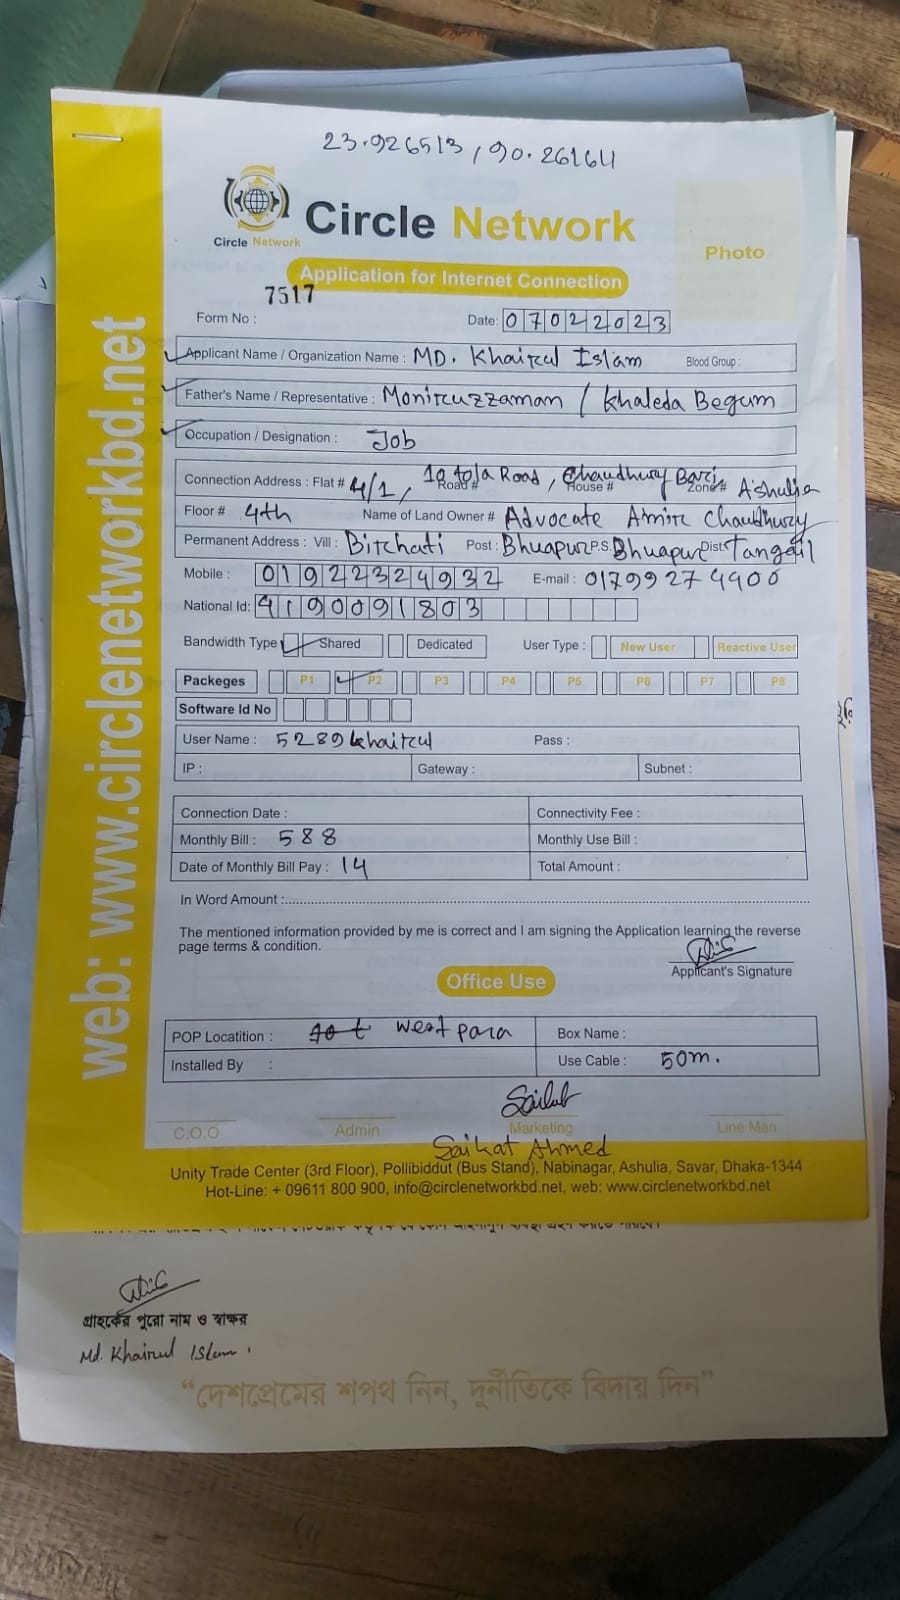 23.926513, 90.261611
Circle Network
Circle Network
Photo
Application for Internet Connection
7517
Form No :
Date: 07022023
Applicant Name / Organization Name : MD. Khairul Islam Blood Group :
Father's Name / Representative : Moniruzzaman / Khaleda Begum
Occupation / Designation : Job
Connection Address : Flat # 4/1, Road # 10 tola Road, House # Chaudhury Bari, Zone # Ashulia
Floor # 4th Name of Land Owner # Advocate Amir Chaudhury
Permanent Address : Vill : Birchati Post : Bhuapur P.S Bhuapur Dist: Tangail
Mobile : 01922324932 E-mail : 01799274400
National Id: 4190091803
Bandwidth Type Shared Dedicated User Type : New User Reactive User
Packeges P1 P2 P3 P4 P5 P6 P7 P8
Software Id No
User Name : 5289khairul Pass :
IP : Gateway : Subnet :
Connection Date : Connectivity Fee :
Monthly Bill : 588 Monthly Use Bill :
Date of Monthly Bill Pay : 14 Total Amount :
In Word Amount :
The mentioned information provided by me is correct and I am signing the Application learning the reverse
page terms & condition.
Applicant's Signature
Office Use
POP Locatition : west para Box Name :
Installed By : Use Cable : 50m.
C.O.O Admin Marketing Line Man
Saikat Ahmed
Unity Trade Center (3rd Floor), Pollibiddut (Bus Stand), Nabinagar, Ashulia, Savar, Dhaka-1344
Hot-Line: + 09611 800 900, info@circlenetworkbd.net, web: www.circlenetworkbd.net
web: www.circlenetworkbd.net
গ্রাহকের পুরো নাম ও স্বাক্ষর
Md. Khairul Islam.
“দেশপ্রেমের শপথ নিন, দুর্নীতিকে বিদায় দিন”